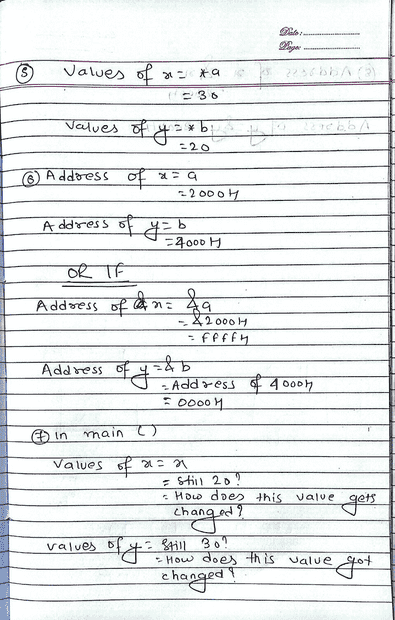 Date: ..................
Page: ..................
(5) Values of x = *a
= 30
Values of y = *b
= 20
(6) Address of x = a
= 2000H
Address of y = b
= 4000H
OR IF
Address of x = &a
= &2000H
= FFFFH
Address of y = &b
= Address of 4000H
= 0000H
(7) In main ()
Values of x = x
= still 20?
= How does this value gets
changed?
values of y = still 30?
= How does this value got
changed?